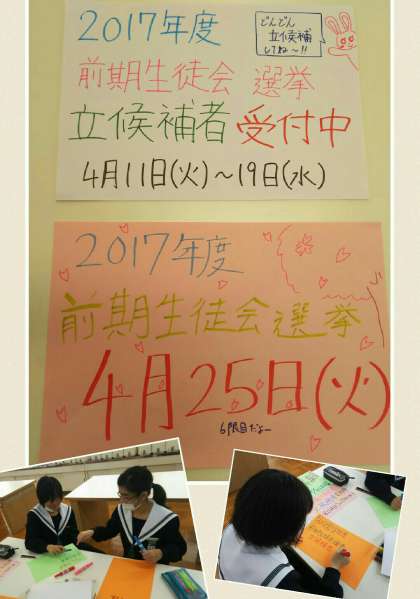 2017年度
どんどん
立候補
してね～!!
前期生徒会 選挙
立候補者 受付中
4月11日(火)～19日(水)
2017年度
前期生徒会選挙
4月25日(火)
6限目だよー